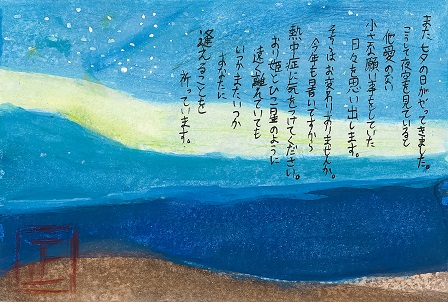 また七夕の日がやってきました。
こうして夜空を見ていると
他愛のない
小さな願い事をしていた
日々を思い出します。
そちらはお変わりありませんか。
今年も暑いですから
熱中症に気をつけてください。
おり姫とひこ星のように
遠く離れていても
いつかまたいつか
あなたに
逢えることを
祈っています。
正